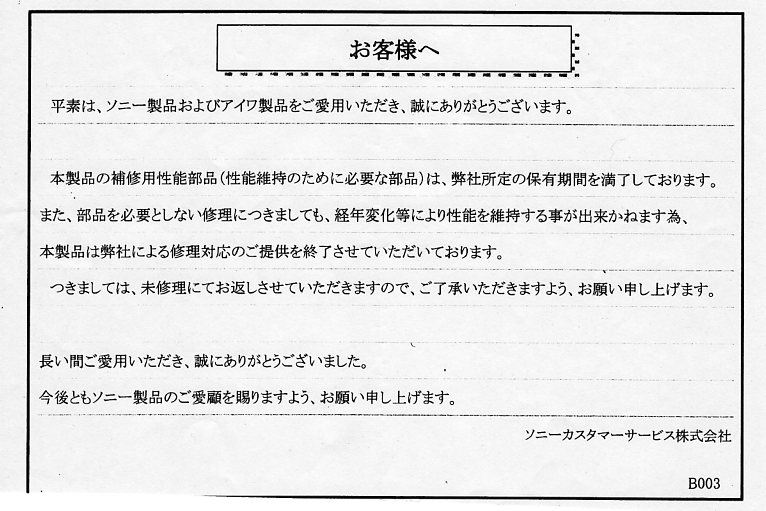 お客様へ
平素は、ソニー製品およびアイワ製品をご愛用いただき、誠にありがとうございます。
本製品の補修用性能部品（性能維持のために必要な部品）は、弊社所定の保有期間を満了しております。
また、部品を必要としない修理につきましても、経年変化等により性能を維持する事が出来かねます為、
本製品は弊社による修理対応のご提供を終了させていただいております。
つきましては、未修理にてお返しさせていただきますので、ご了承いただきますよう、お願い申し上げます。
長い間ご愛用いただき、誠にありがとうございました。
今後ともソニー製品のご愛顧を賜りますよう、お願い申し上げます。
ソニーカスタマーサービス株式会社
B003